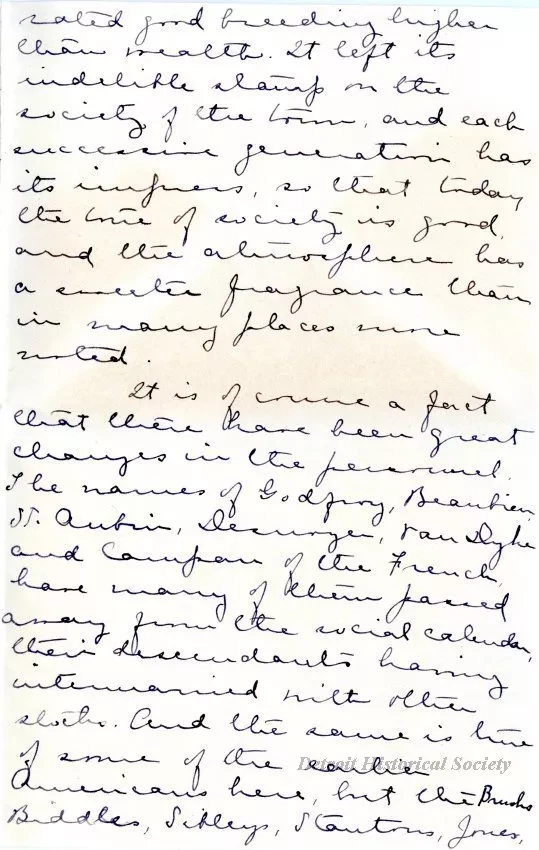 rated good breeding higher
than wealth. It left its
indelible stamp on the
society of the town, and each
successive generation has
its impress, so that today
the tone of society is good,
and the atmosphere has
a sweeter fragrance than
in many places more
noted.
It is of course a fact
that there have been great
changes in the personnel.
The names of Godfroy, Beaubien
St. Aubin, Desnoyer, Van Dyke
and Campau of the French,
have many of them passed
away from the social calendar,
their descendants having
intermarried with other
And the same is true
of some of the earlier
Detroit Historical Society
Americans here, but the Brushs
Biddles, Sibleys, Stantons, Jones,